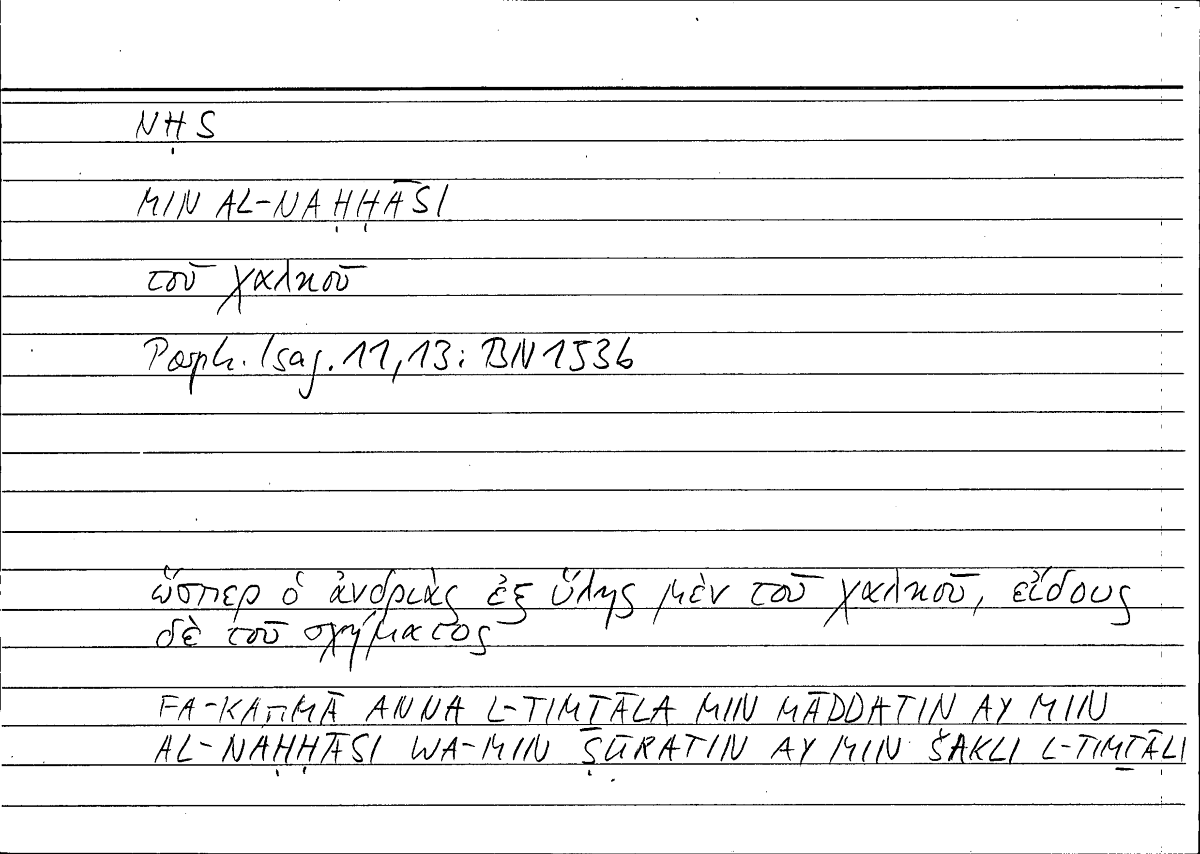 NḤS
MIN AL-NAḤḤĀSI
τοῦ χαλκοῦ
Porph. Isag. 11,13: BN 1536
ὥσπερ ὁ ἀνδριὰς ἐξ ὕλης μὲν τοῦ χαλκοῦ, εἴδους
δὲ τοῦ σχήματος
FA-KAMĀ ANNA L-TIMṮĀLA MIN MĀDDATIN AY MIN
AL-NAḤḤĀSI WA-MIN ṢŪRATIN AY MIN ŠAKLI L-TIMṮĀLI